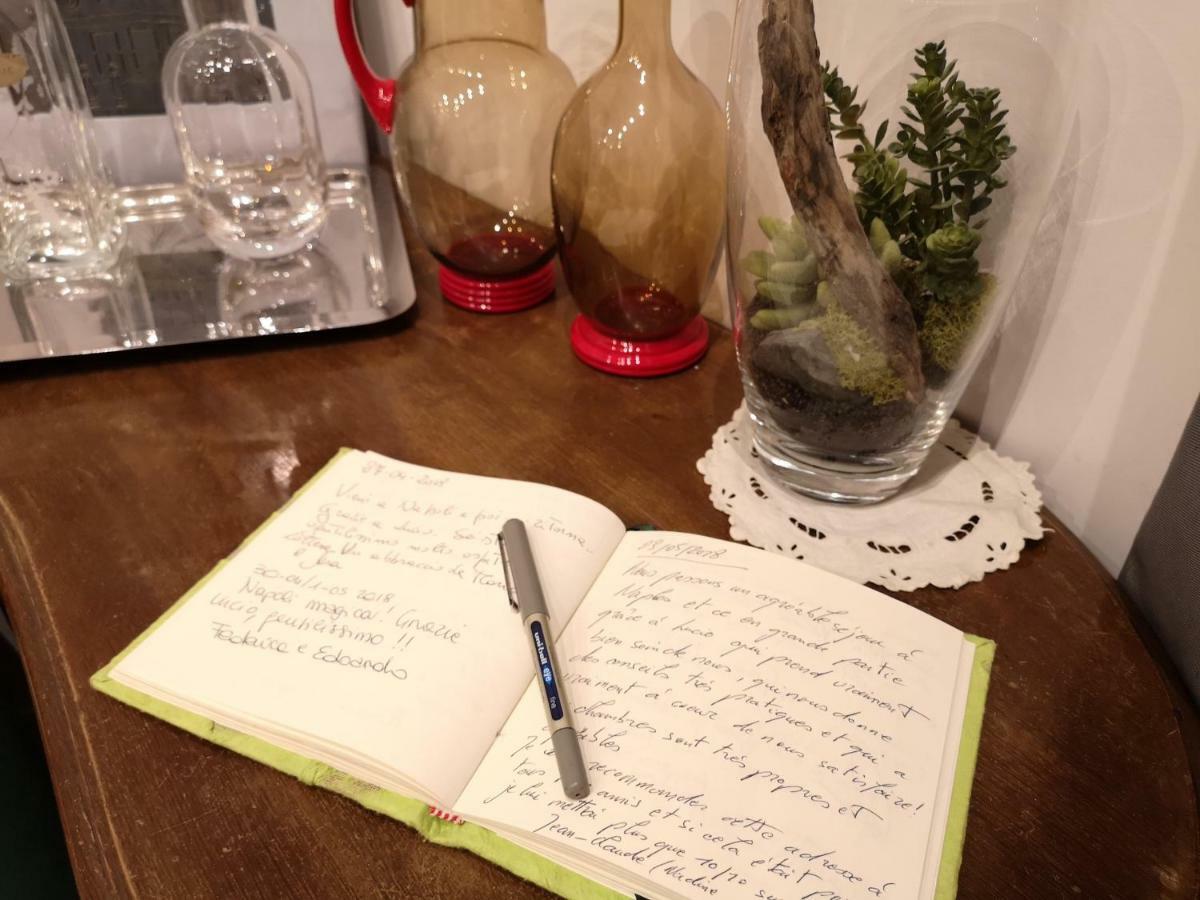 27-04-2018
Vedi a Napoli e poi ritorna...
Grazie a Lucio. Se
gentilissimo molto
Un abbraccio da
e
30-04/1-05 2018
Napoli magica! Grazie
Lucio, gentilissimo !!
Federica e Edoardo
03/05/2018
Nous passons un agréable séjour à
Naples et ce en grande partie
grâce à Lucio qui prend vraiment
bien soin de nous, qui nous donne
des conseils très pratiques et qui a
vraiment à coeur de nous satisfaire!
chambres sont très propres et
Je recommander cette adresse à
tous amis et si cela était
je lui mettrai plus que 10/10 sur
Jean-Claude (Nadine
uni-ball eye fine